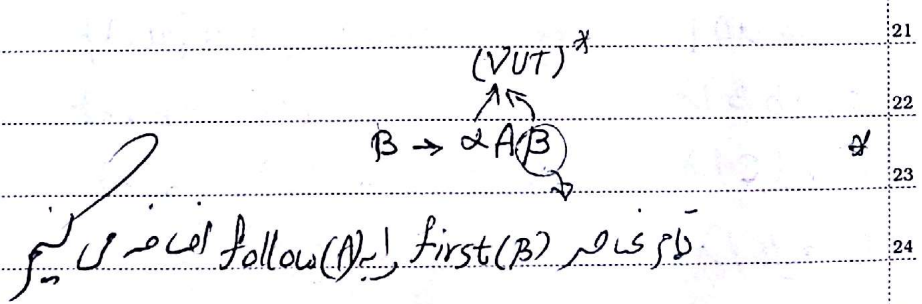 21
(VUT)*
22
B → αAβ *
23
تمام عناصر first(β) را به follow(A) اضافه می کنیم
24